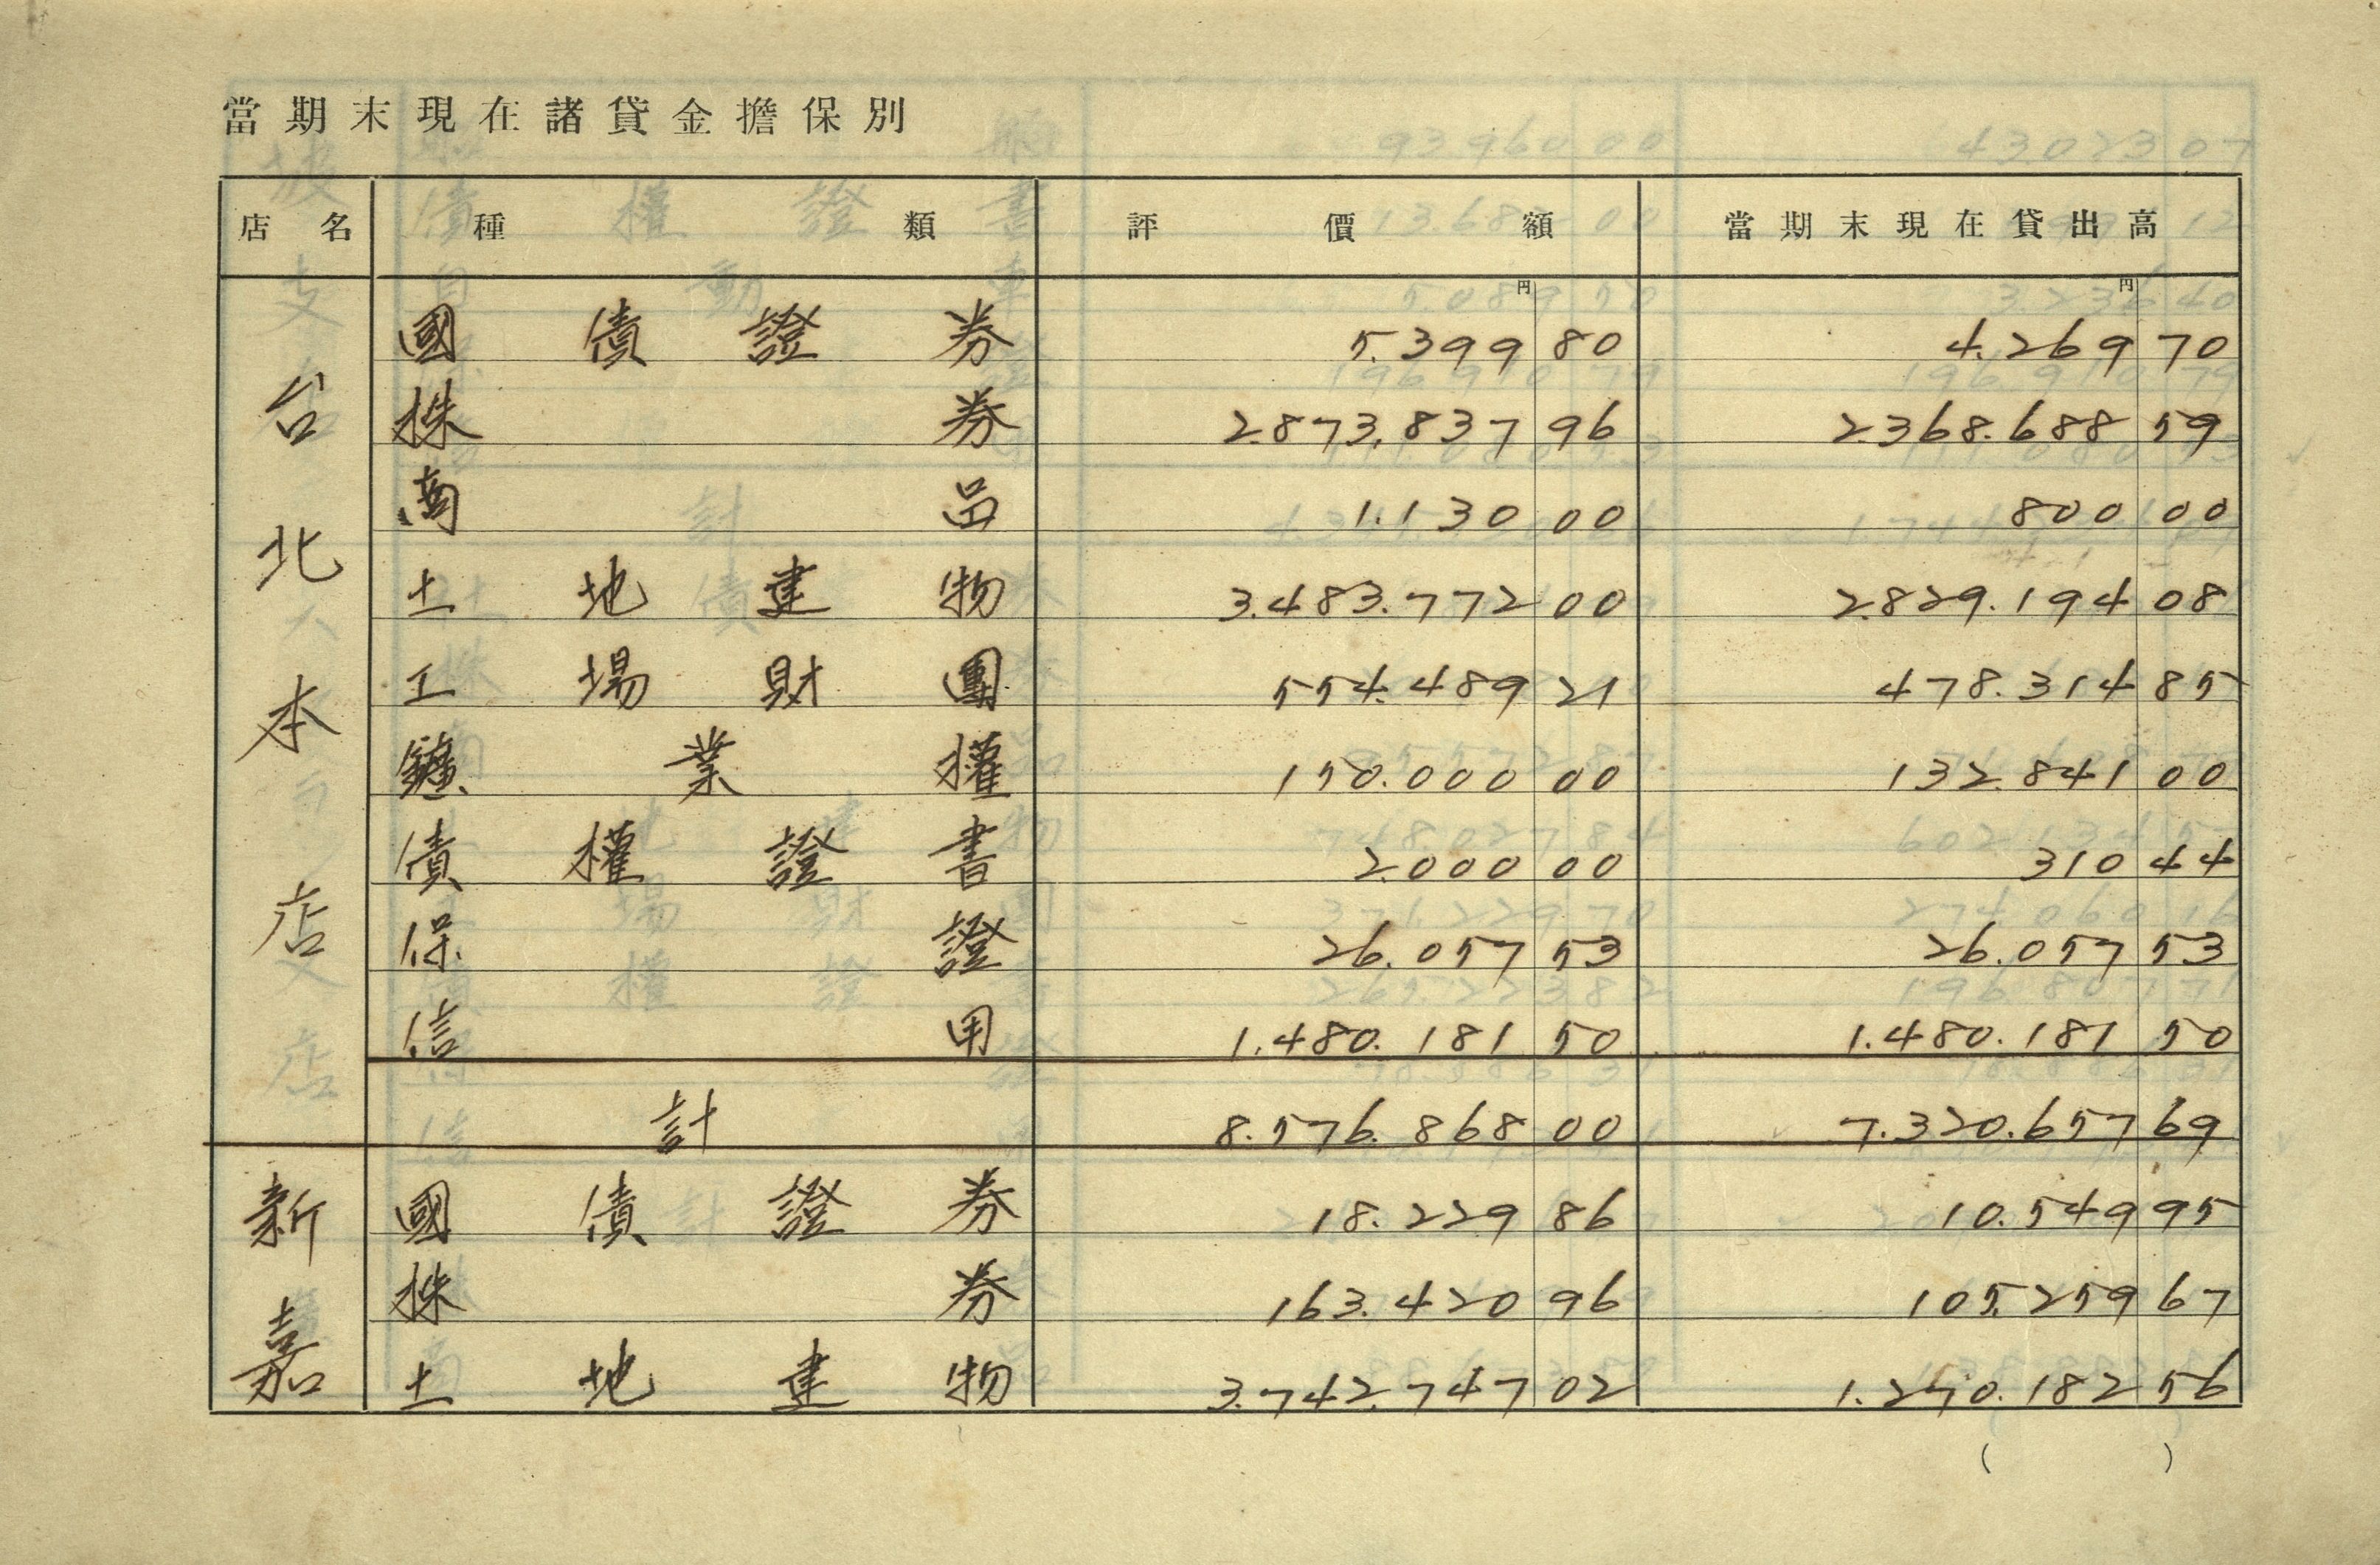 當期末現在諸貸金擔保別
店名 種類 評價額 當期末現在貸出高
円 円
台北本店
國債證券 5.399 80 4.269 70
株券 2.873.837 96 2.368.688 59
商品 1.130 00 800 00
土地建物 3.483.772 00 2.829.194 08
工場財團 554.489 21 478.314 85
鑛業權 150.000 00 132.841 00
債權證書 2.000 00 310 44
保證 26.057 53 26.057 53
信用 1.480.181 50 1.480.181 50
計 8.576.868 00 7.320.657 69
新嘉
國債證券 18.229 86 10.549 95
株券 163.420 96 105.259 67
土地建物 3.742.747 02 1.270.182 56
( )